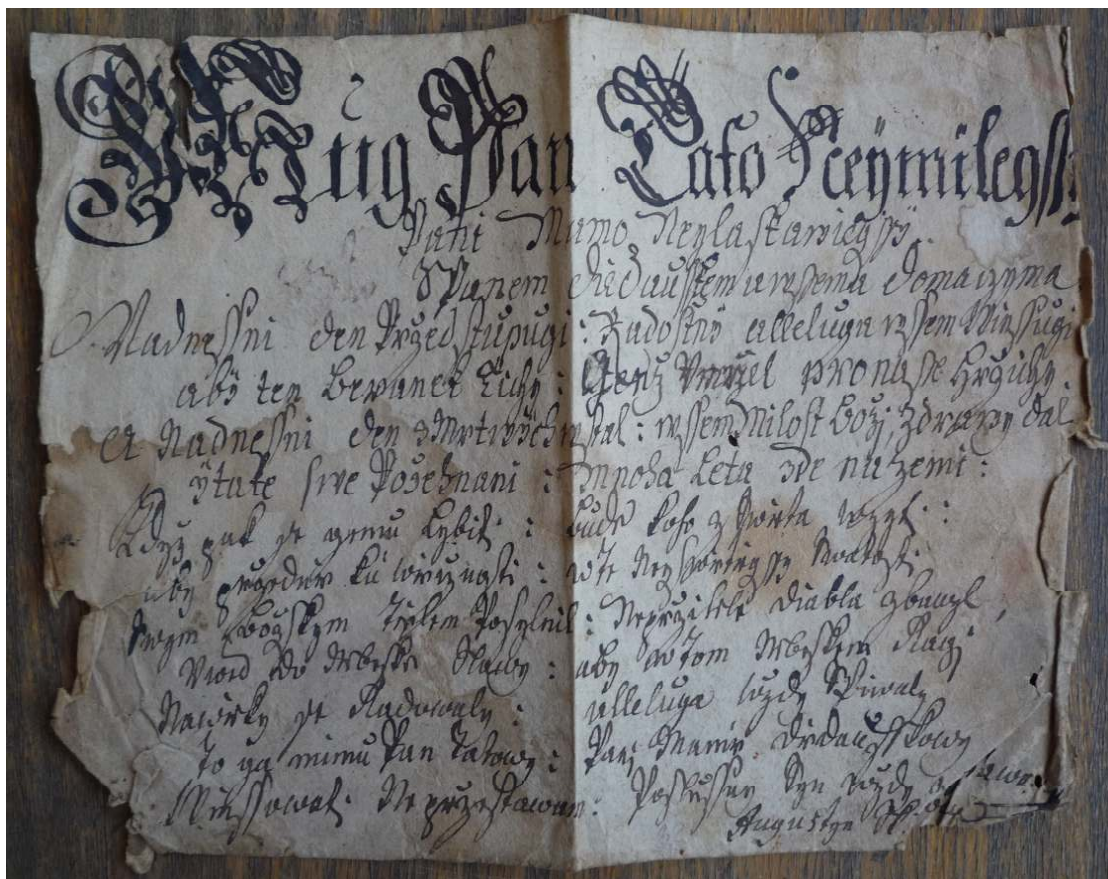 Mug Pan Tato Neymilegssy
Pani Mamo Neylaskawiegssy
SPanem diedauskem a wssema domaczyma
Nadnessni den Przedstupugi: Radostny alleluga wssem Winssugi
aby ten Beranek Tichy: Genz Vmrzel pro nasse Hrzichy
A Nadnessni den zMrtwych wstal: wssem Milost Bozj, zdrawy dal
ytake swe Pożehnani: Mnoha Leta zde na zemi:
Kdyz pak se gemu Lybit: bude koho z Swieta wzyt:
aby przed w te Neyswietegssy Swatosti
swym Bozskym Tielem Posylnil: Neprzitele diabla
Vwed do Nebeske Slawy: aby w tom Nebeskem Ragi
Nawieky se Radowaly: alleluga wzdy Spiwaly
To ga mimu Pan Tatowy: Pani Mamie didausskowy
Winssowat. Neprzestawam: Poslussny Syn wzdy
Augustyn